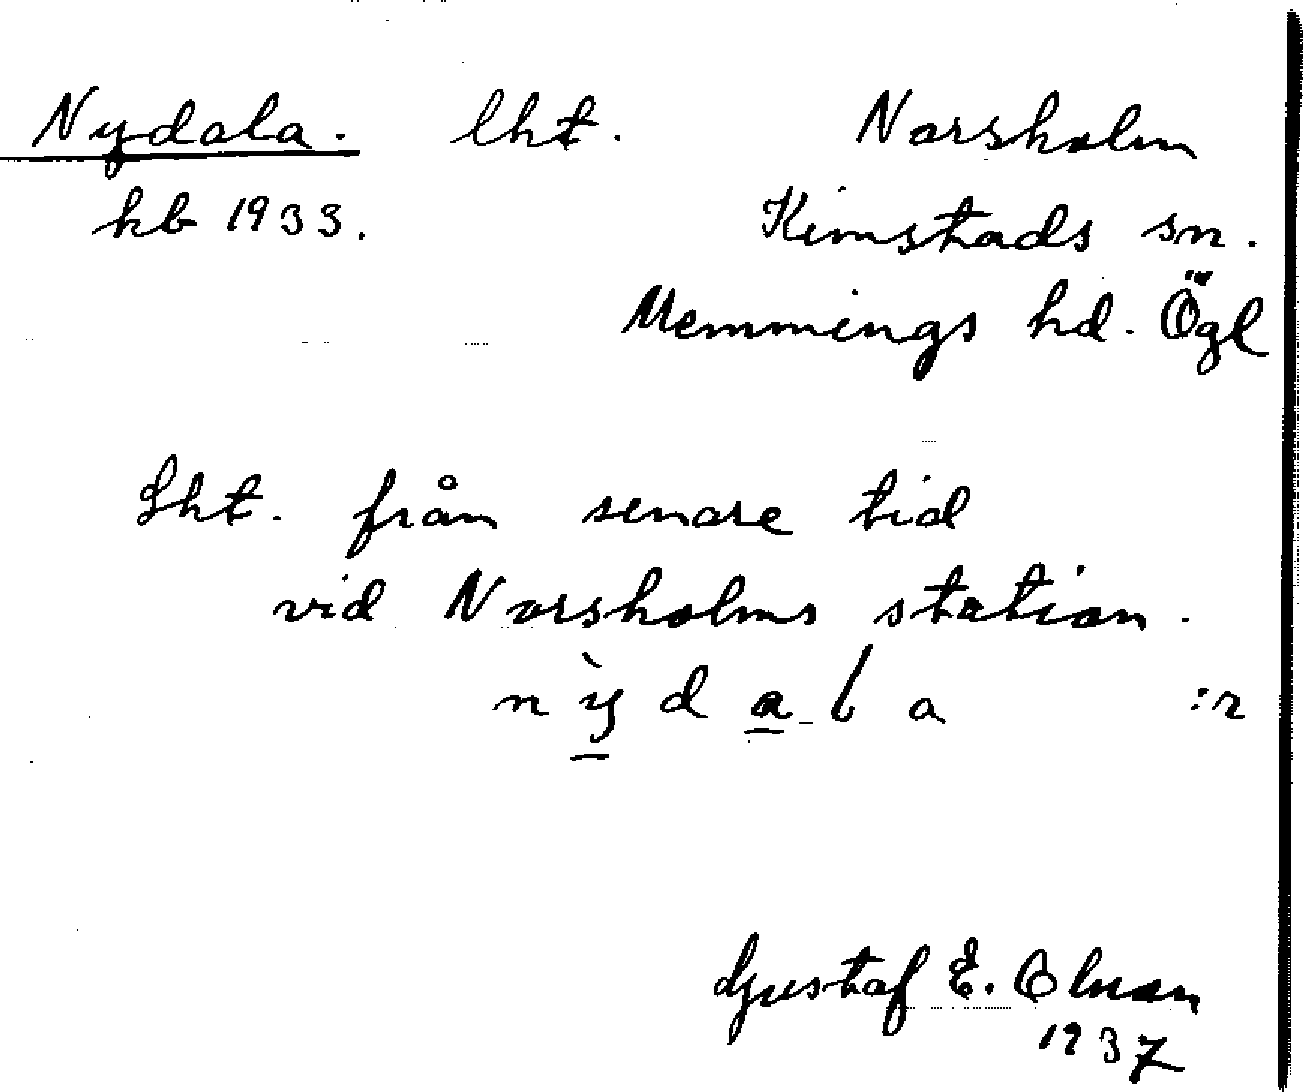 Nydala. lht. Norsholm
kb 1933. Kimstads sn.
Memmings hd. Ögl
Lht. från senare tid
vid Norsholms station.
nỳdala :r
Gustaf E.
1937